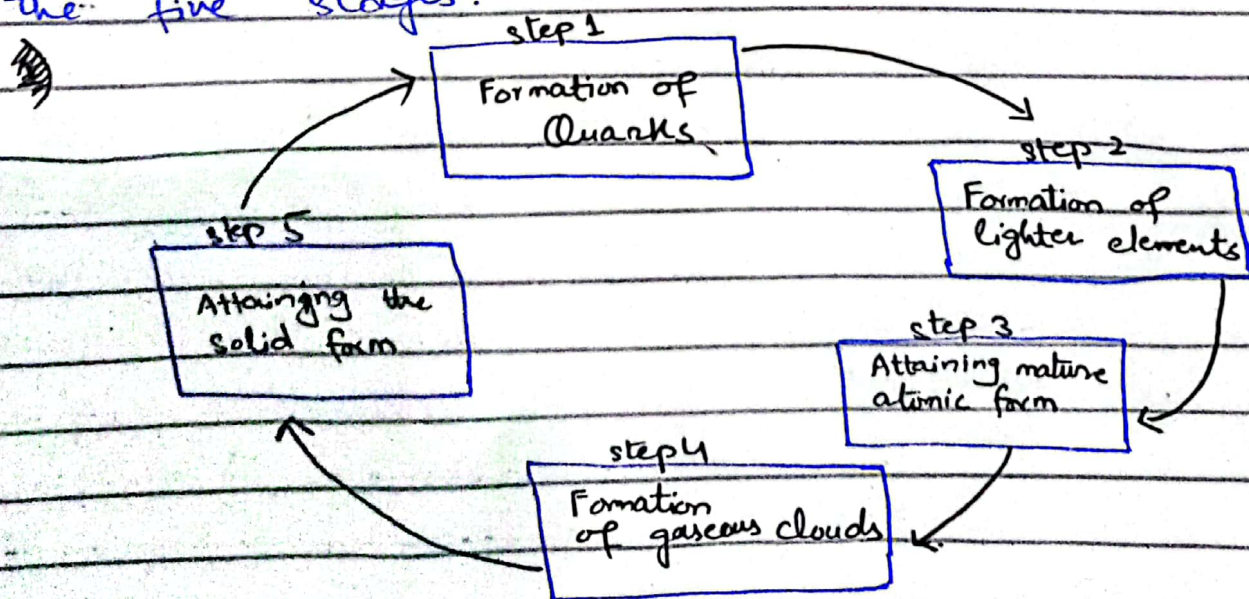 the five stages.
step 1
Formation of
Quarks
step 2
Formation of
lighter elements
step 3
Attaining mature
atomic form
step 4
Fomation
of gaseous clouds
step 5
Attainging the
solid form